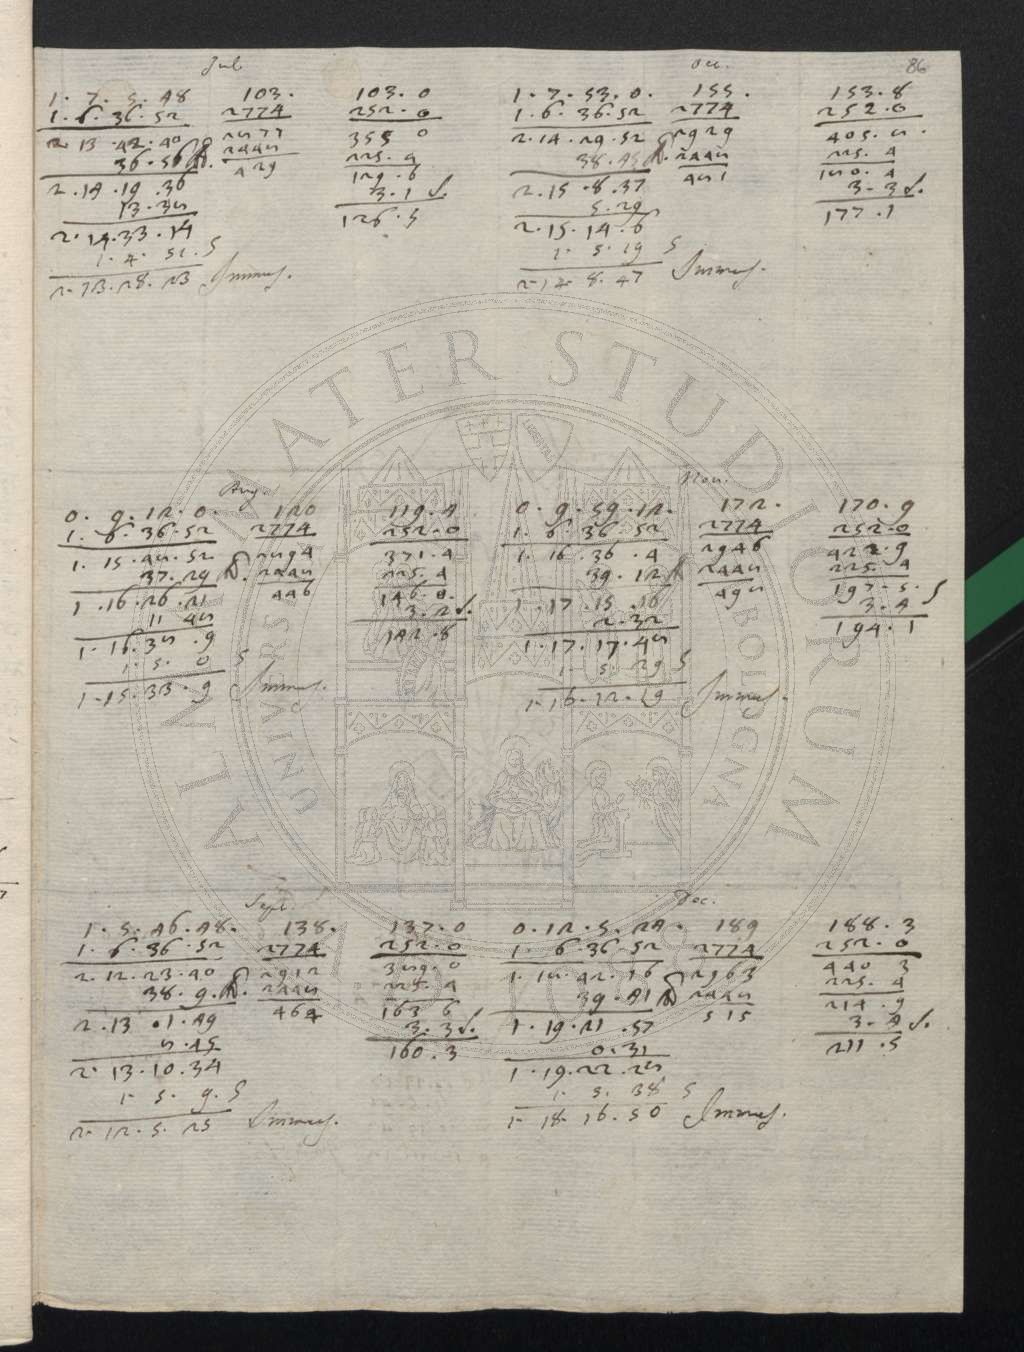 86
Jul.
1. 7. 5. 48
1. 6. 36. 52
2. 13. 42. 40
36. 56
2. 14. 19. 36
13. 35
2. 14. 33. 14
1. 4. 51. S
2. 13. 28. 23
103.
2774
2577
2445
429
103. 0
252. 0
355 0
225. 4
129. 6
3. 1 S.
126. 5
Oct.
1. 7. 53. 0.
1. 6. 36. 52
2. 14. 29. 52
38. 45
2. 15. 8. 37
5. 29
2. 15. 14. 6
1. 5. 19 S
2. 14. 8. 47
155.
2774
2929
2445
451
153. 8
252. 0
405. 5.
225. 4
150. 4
3. 3 S.
177. 1
Aug.
0. 9. 12. 0.
1. 6. 36. 52
1. 15. 45. 52
37. 29
1. 16. 26. 21
11 45
1. 16. 35. 9
1. 5. 0 S
1. 15. 33. 9
120
2774
2594
2445
446
119. 4
252. 0
371. 4
225. 4
146. 0.
3. 2 S.
142. 8
Nov.
0. 9. 59. 12.
1. 6. 36. 52
1. 16. 36. 4
39. 12
1. 17. 15. 16
2. 32
1. 17. 17. 45
1. 5. 29 S
1. 16. 12. 19
172.
2774
2946
2445
495
170. 9
252. 0
422. 9
225. 4
197. 5. S
3. 4
194. 1
Sept.
1. 5. 46. 48.
1. 6. 36. 52
2. 12. 23. 40
38. 9.
2. 13 01. 49
5. 45
2. 13. 10. 34
1. 5. 9. S
2. 12. 5. 25
138.
2774
2912
2445
464
137. 0
252. 0
359. 0
225. 4
163 6
3. 3 S.
160. 3
Dec.
0. 12. 5. 24.
1. 6. 36. 52
1. 15. 42. 16
39. 41
1. 19. 21. 57
0. 31
1. 19. 22. 25
1. 5. 38 S
1. 18. 16. 50
189
2774
2963
2445
515
188. 3
252. 0
440 3
225. 4
214. 9
3. 4 S.
211. 5
ALMA MATER STUDIORUM
UNIVERSITÀ DI BOLOGNA